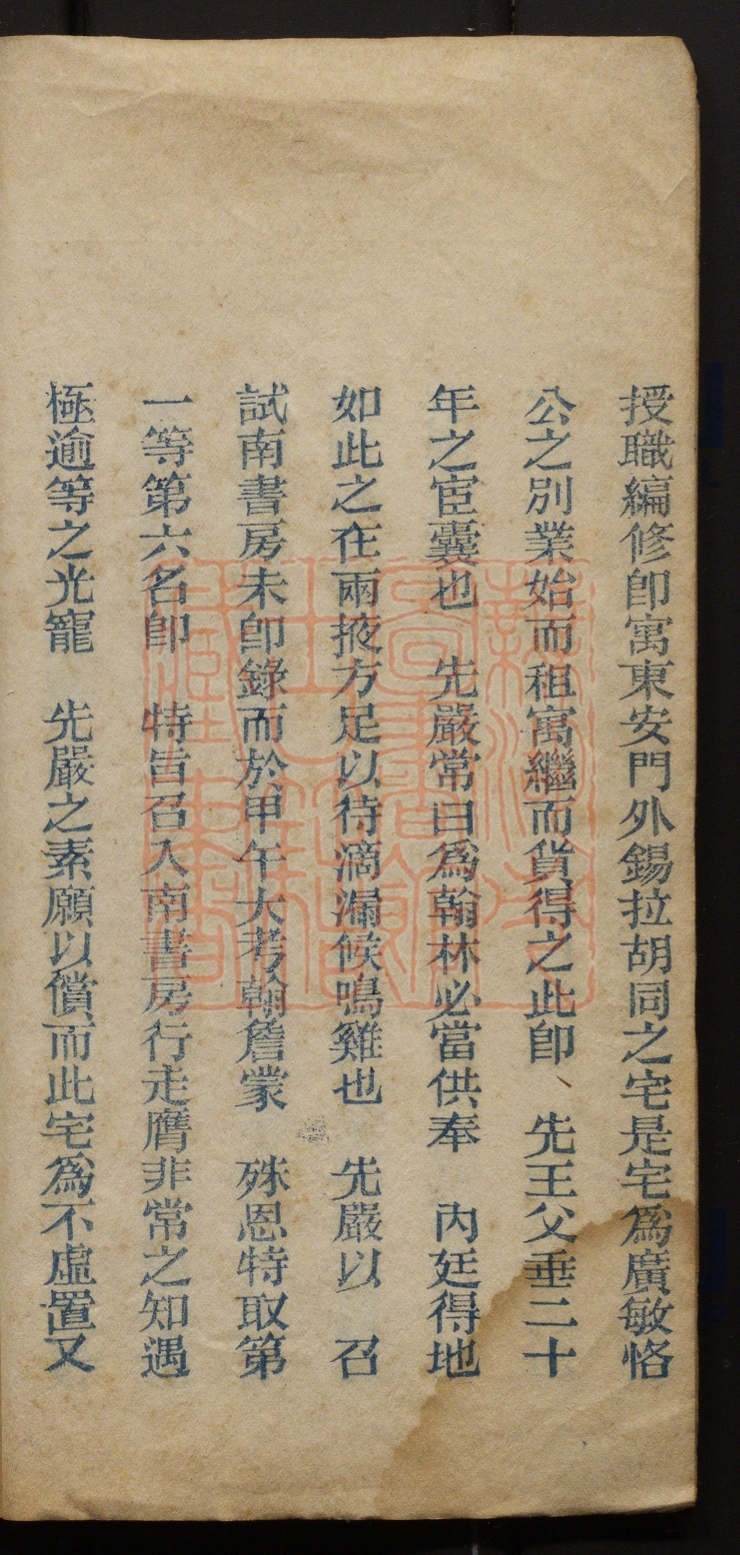 授職編修卽寓東安門外錫拉胡同之宅是宅爲廣敏恪
公之別業始而租寓繼而貨得之此卽、先王父垂二十
年之宦囊也　先嚴常曰爲翰林必當供奉　內廷得地
如此之在兩掖方足以待滴漏候鳴雞也　先嚴以　召
試南書房未卽錄而於甲午大考翰詹蒙　殊恩特取第
一等第六名卽　特旨召入南書房行走膺非常之知遇
極逾等之光寵　先嚴之素願以償而此宅爲不虛置又